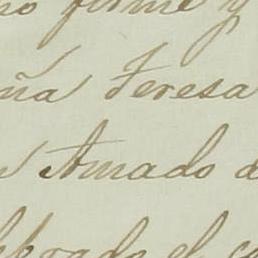 no firme y
ña Teresa
Amado d
brado el ca